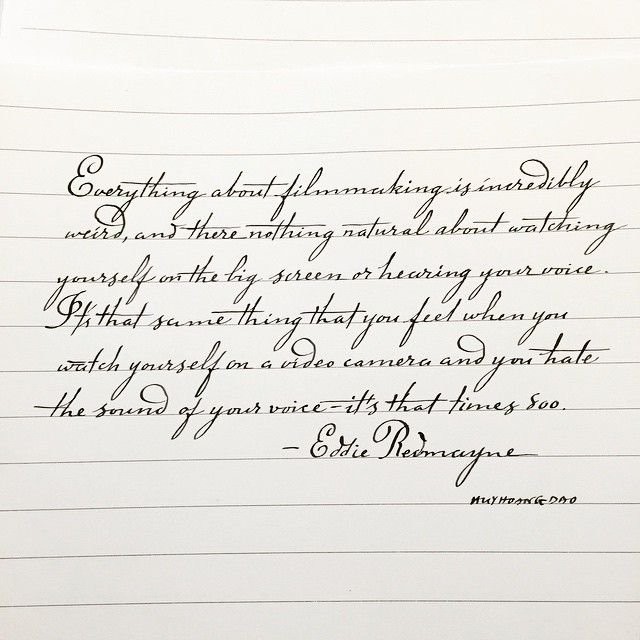 Everything about filmmaking is incredibly
weird, and there nothing natural about watching
yourself on the big screen or hearing your voice.
It's that same thing that you feel when you
watch yourself on a video camera and you hate
the sound of your voice - it's that times 800.
- Eddie Redmayne
HUYHOANGDAO